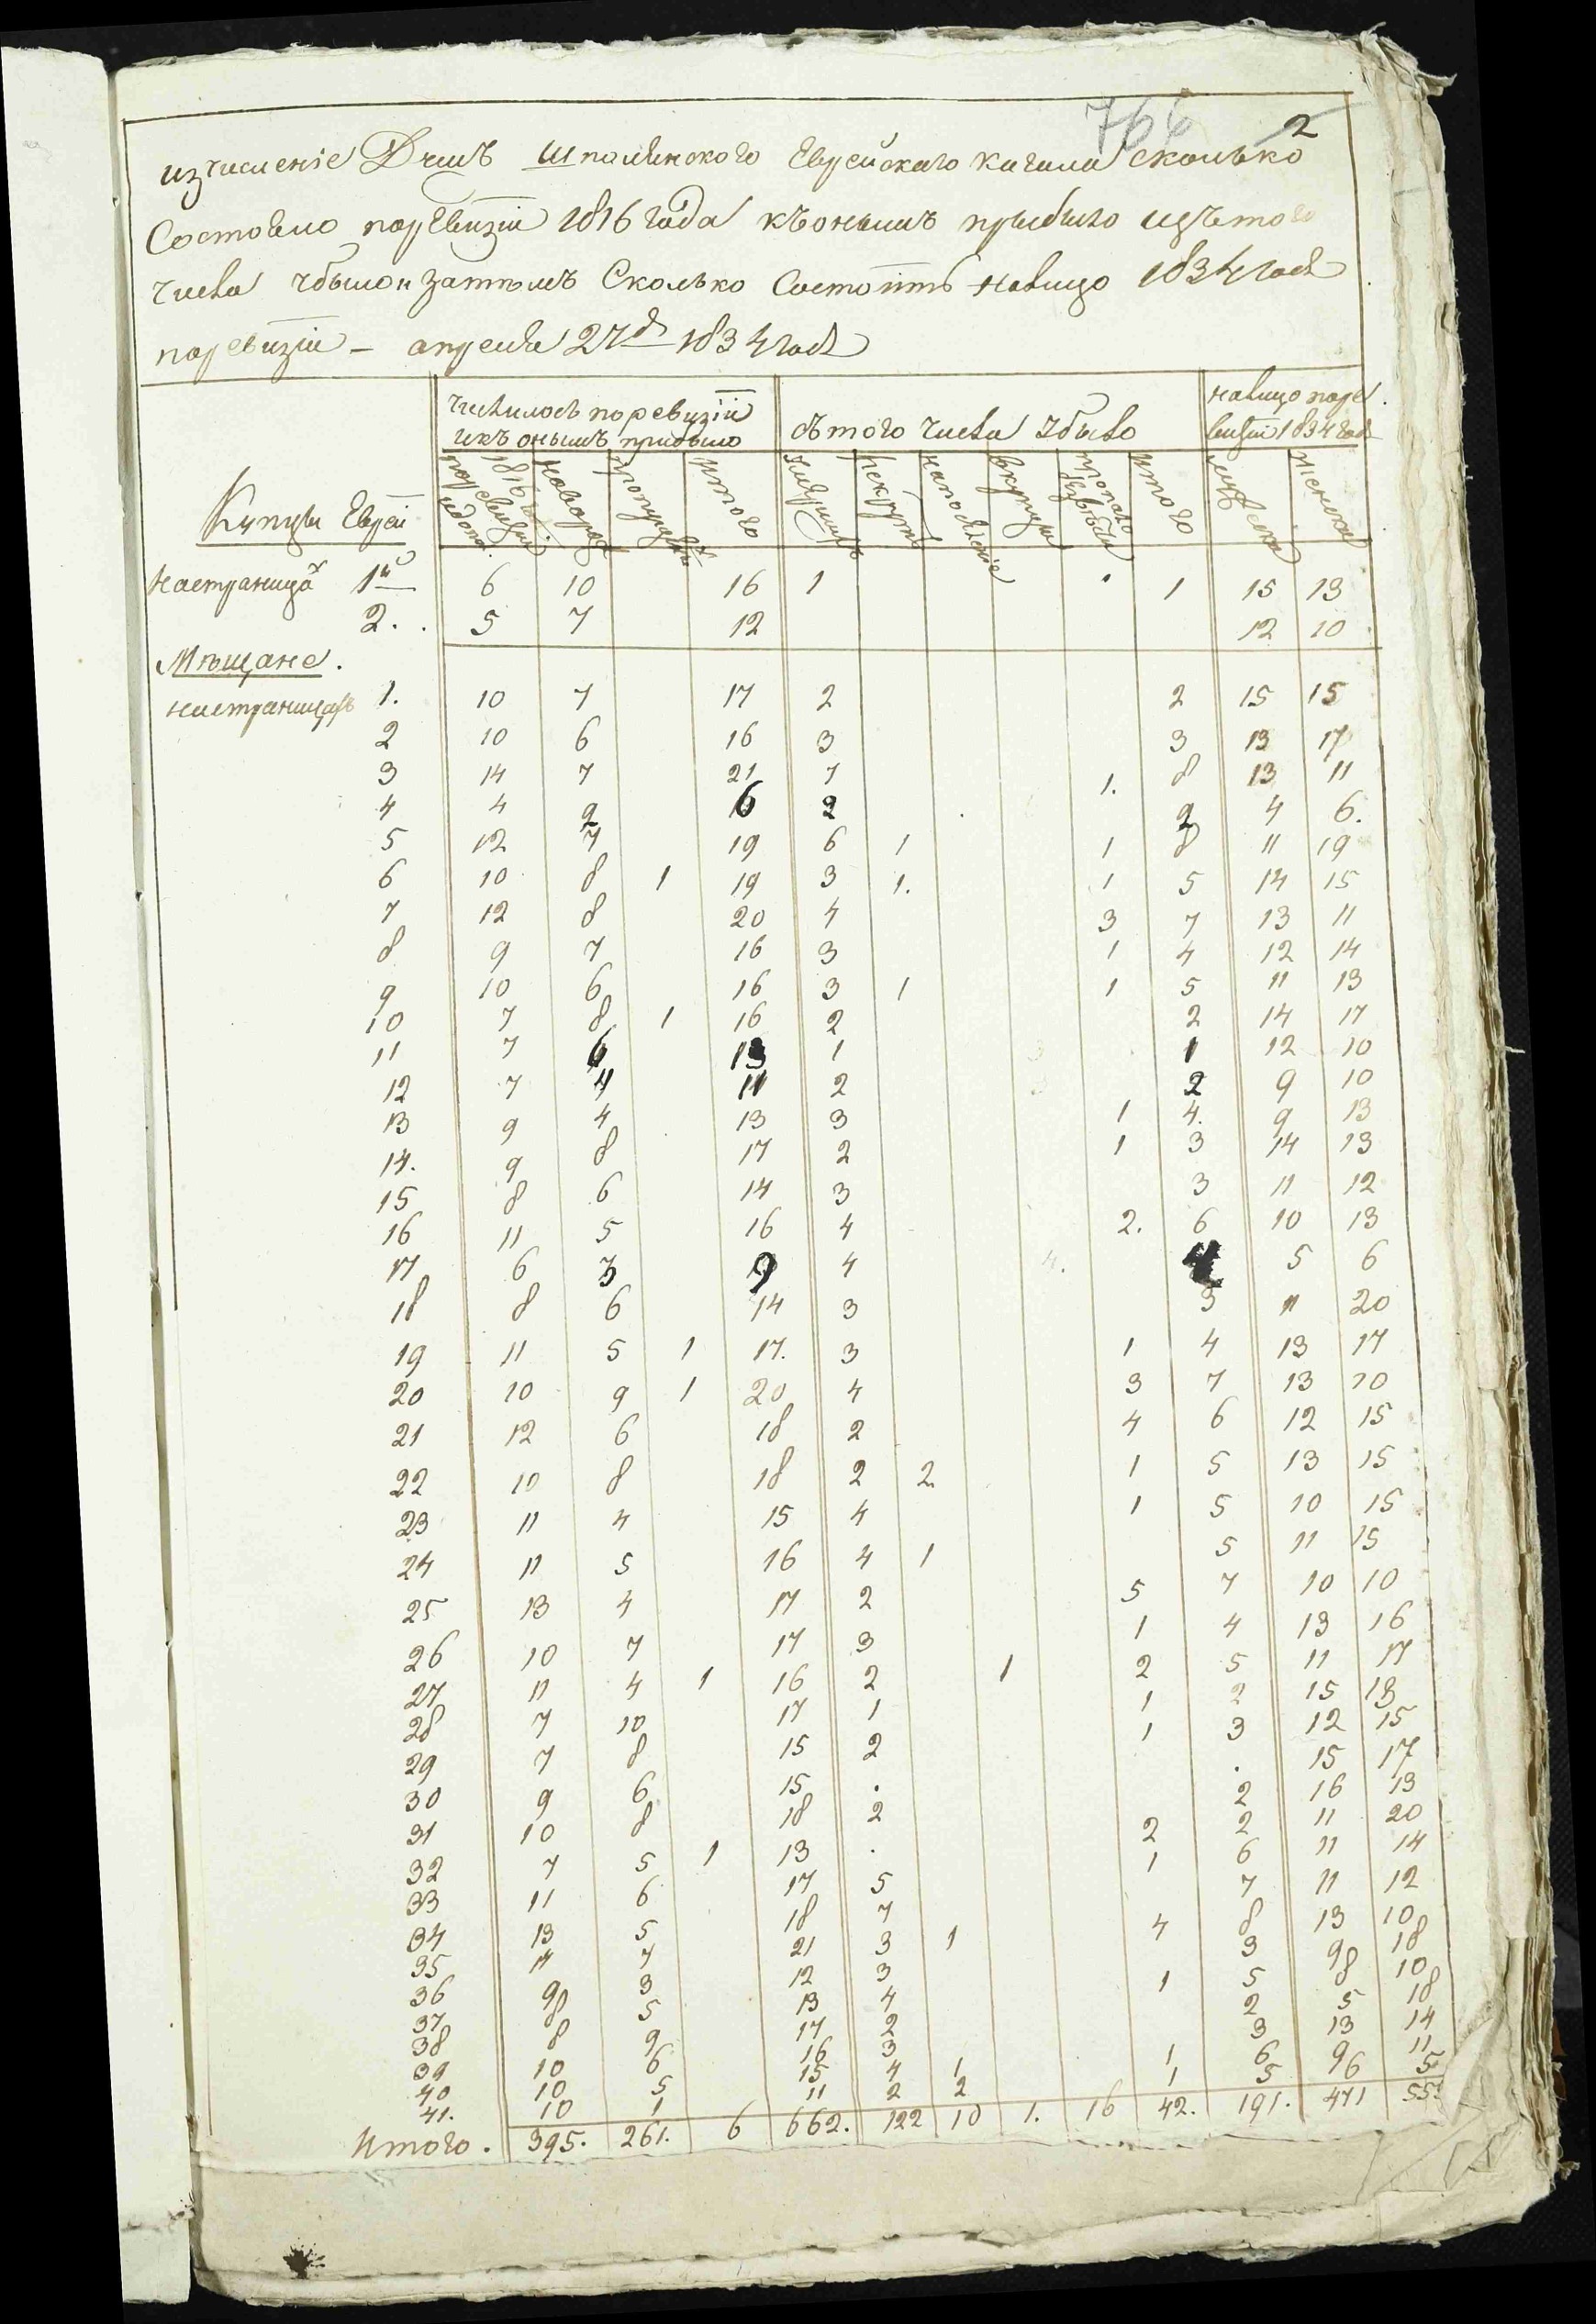 766 2
изчисленіе Душъ Шполянского Еврейскаго Кагала сколько
Состояло поревизіи 1816 года къонымъ прыбыло изътого
числа убылои затѣмъ Сколько Состоитъ налицо 1834 года
поревизіи – апреля 27д 1834 года
числилось поревизіи икъ онымъ прибыло | сътого числа Убыло | налицо поре визіи 1834 года
Купцы Евреи | поревизіи 1816 го | новорож | пропущен | итого | умершихъ | рекрутъ | напоселеніе | вкупцы | пропало безвѣсти | итого | мужеска | женска
Настраницѣ 1й 6 10 16 1 1 15 13
2. 5 7 12 12 10
Мѣщане.
настраницахъ 1. 10 7 17 2 2 15 15
2 10 6 16 3 3 13 17
3 14 7 21 7 1. 8 13 11
4 4 2 6 2 2 4 6.
5 12 7 19 6 1 1 8 11 19
6 10 8 1 19 3 1. 1 5 14 15
7 12 8 20 4 3 7 13 11
8 9 7 16 3 1 4 12 14
9 10 6 16 3 1 1 5 11 13
10 7 8 1 16 2 2 14 17
11 7 6 13 1 1 12 10
12 7 4 11 2 2 9 10
13 9 4 13 3 1 4. 9 13
14. 9 8 17 2 1 3 14 13
15 8 6 14 3 3 11 12
16 11 5 16 4 2. 6 10 13
17 6 3 9 4 4 5 6
18 8 6 14 3 3 11 20
19 11 5 1 17. 3 1 4 13 17
20 10 9 1 20 4 3 7 13 10
21 12 6 18 2 4 6 12 15
22 10 8 18 2 2 1 5 13 15
23 11 4 15 4 1 5 10 15
24 11 5 16 4 1 5 11 15
25 13 4 17 2 5 7 10 10
26 10 7 17 3 1 4 13 16
27 11 4 1 16 2 1 2 5 11 17
28 7 10 17 1 1 2 15 13
29 7 8 15 2 1 3 12 15
30 9 6 15 . . 15 17
31 10 8 18 2 2 16 13
32 7 5 1 13 . 2 2 11 20
33 11 6 17 5 1 6 11 14
34 13 5 18 7 7 11 12
35 14 7 21 3 1 4 8 13 10
36 9 3 12 3 3 9 18
37 8 5 13 4 1 5 8 10
38 8 9 17 2 2 5 18
39 10 6 16 3 3 13 14
40 10 5 15 4 1 1 6 9 11
41. 10 1 11 2 2 1 5 6 5
Итого. 395. 261. 6 662. 122 10 1. 16 42. 191. 471 55